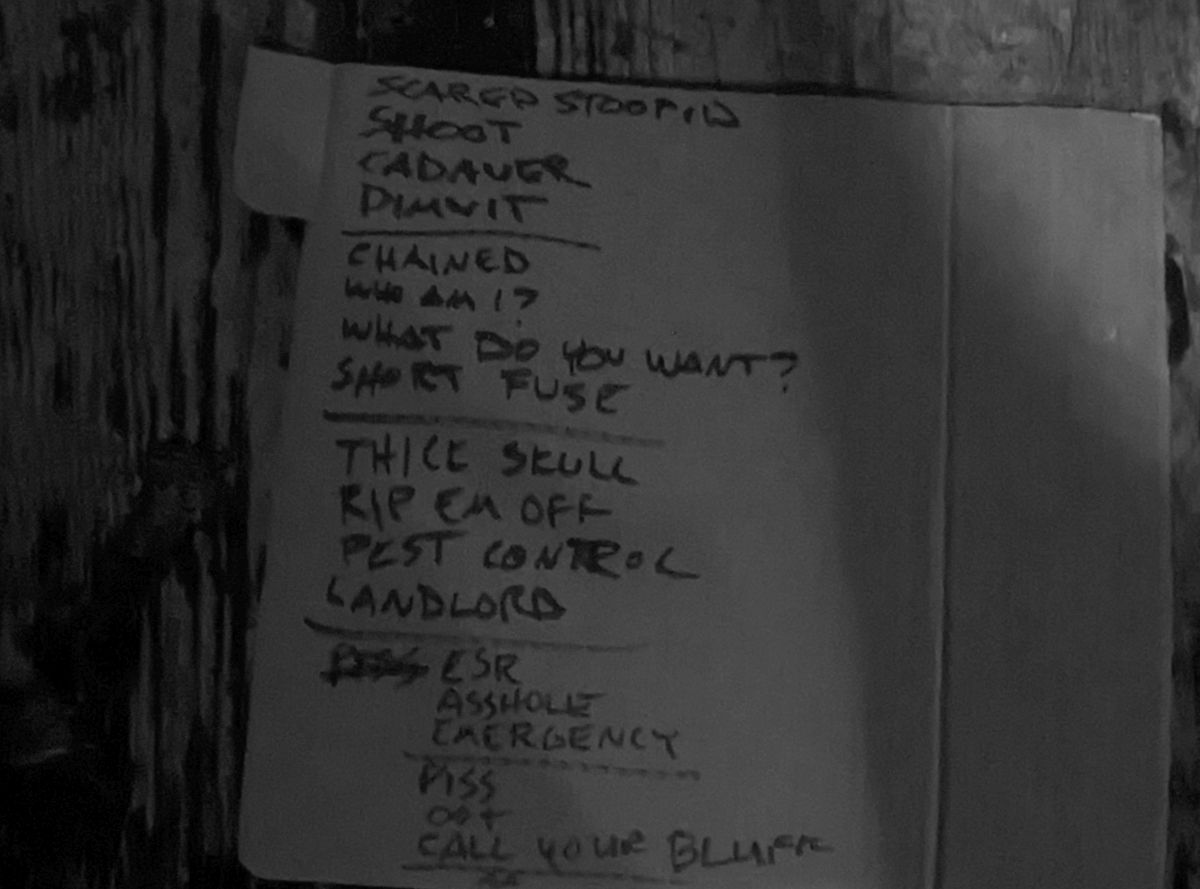 SCARED STOOPID
SHOOT
CADAVER
DIMWIT
CHAINED
WHO AM I?
WHAT DO YOU WANT?
SHORT FUSE
THICK SKULL
RIP EM OFF
PEST CONTROL
LANDLORD
ESR
ASSHOLE
EMERGENCY
PISS
CALL YOUR BLUFF